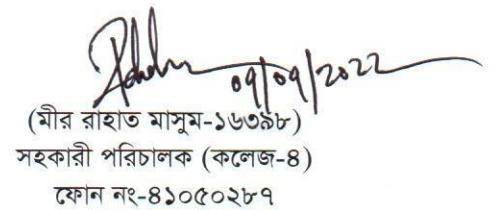 ০৭/০৭/2022
(মীর রাহাত মাসুম-১৬৩৯৮)
সহকারী পরিচালক (কলেজ-৪)
ফোন নং-৪১০৫০২৮৭